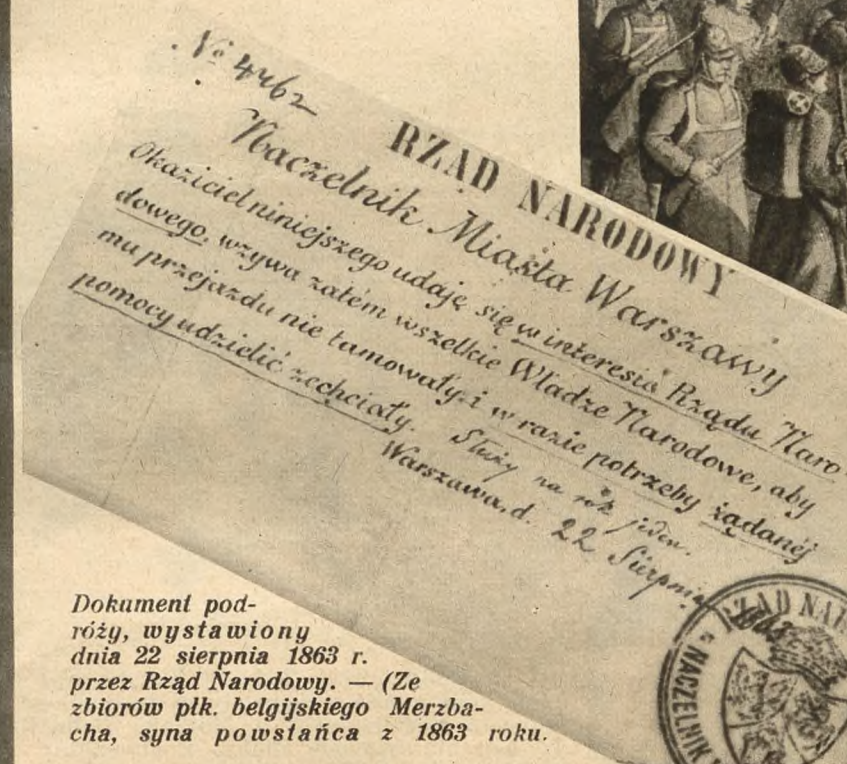 № 4462
RZĄD NARODOWY
Naczelnik Miasta Warszawy
Okaziciel niniejszego udaję się w interesie Rządu Naro-
dowego, wzywa zatém wszelkie Władze Narodowe, aby
mu przejazdu nie tamowały i w razie potrzeby żądanéj
pomocy udzielić zechciały. Służy na rok jeden.
Warszawa, d. 22 Sierpnia 1863
RZĄD NAR
NACZELNIK MI
Dokument pod-
róży, wystawiony
dnia 22 sierpnia 1863 r.
przez Rząd Narodowy. — (Ze
zbiorów płk. belgijskiego Merzba-
cha, syna powstańca z 1863 roku.